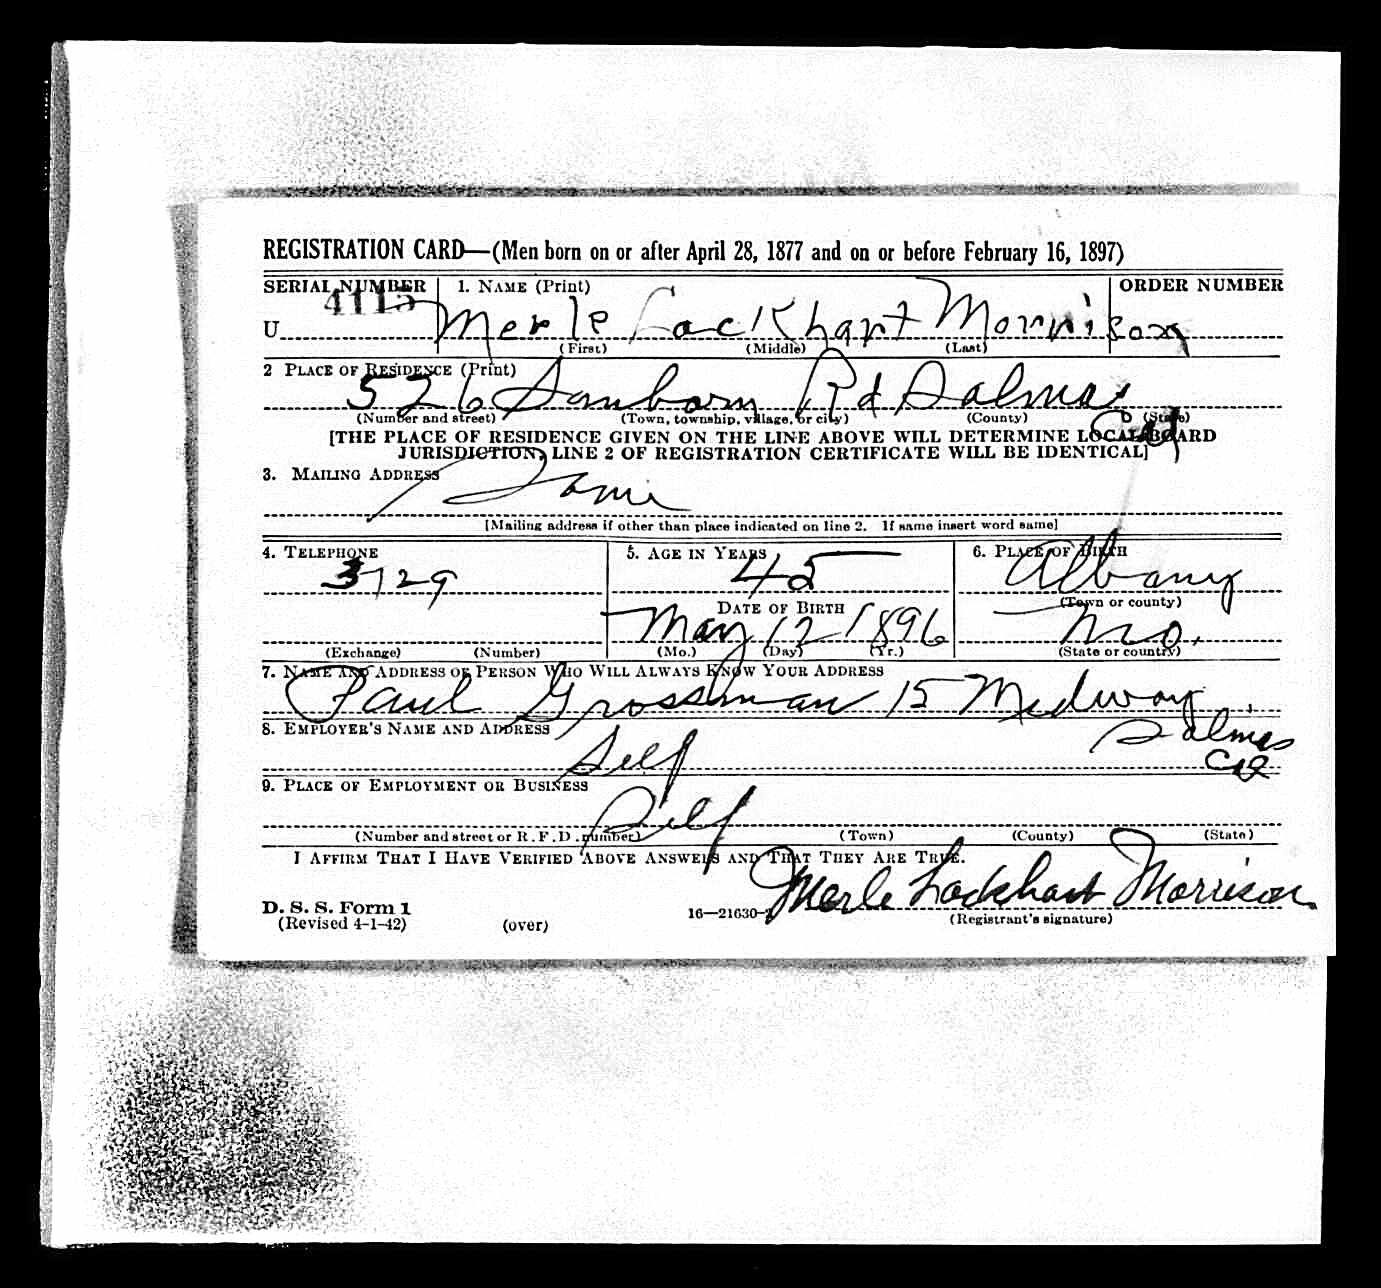 REGISTRATION CARD—(Men born on or after April 28, 1877 and on or before February 16, 1897)
SERIAL NUMBER 1. NAME (Print) ORDER NUMBER
4115
U Merle Lockhart Morrison
(First) (Middle) (Last)
2 PLACE OF RESIDENCE (Print)
526 Sanborn Rd Salinas
(Number and street) (Town, township, village, or city) (County) (State)
Cal
[THE PLACE OF RESIDENCE GIVEN ON THE LINE ABOVE WILL DETERMINE LOCAL BOARD
JURISDICTION; LINE 2 OF REGISTRATION CERTIFICATE WILL BE IDENTICAL]
3. MAILING ADDRESS
Same
[Mailing address if other than place indicated on line 2. If same insert word same]
4. TELEPHONE 5. AGE IN YEARS 6. PLACE OF BIRTH
3729 45 Albany
DATE OF BIRTH (Town or county)
May 12 1896 Mo.
(Exchange) (Number) (Mo.) (Day) (Yr.) (State or country)
7. NAME AND ADDRESS OF PERSON WHO WILL ALWAYS KNOW YOUR ADDRESS
Paul Grossman 15 Midway
Salinas
8. EMPLOYER'S NAME AND ADDRESS
Self
Cal
9. PLACE OF EMPLOYMENT OR BUSINESS
Self
(Number and street or R. F. D. number) (Town) (County) (State)
I AFFIRM THAT I HAVE VERIFIED ABOVE ANSWERS AND THAT THEY ARE TRUE.
Merle Lockhart Morrison
D. S. S. Form 1
(Revised 4-1-42) (over) 16—21630-2 (Registrant's signature)